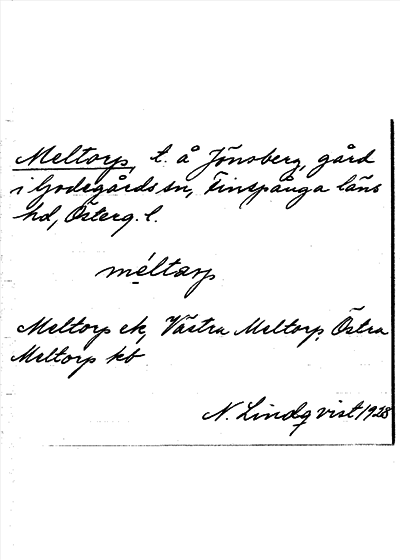 Meltorp, t. å Jönsberg, gård
i Godegårds sn, Finspånga läns
hd, Österg. l.
méltɑrp
Meltorp ek, Västra Meltorp, Östra
Meltorp kb
N. Lindqvist 1928